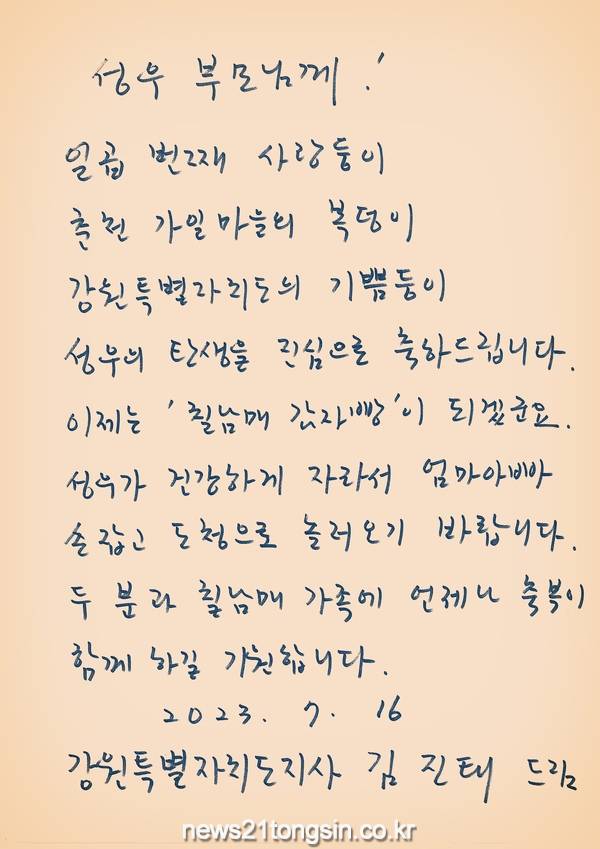 성우 부모님께!
일곱 번째 사랑둥이
춘천 가일마을의 복덩이
강원특별자치도의 기쁨둥이
성우의 탄생을 진심으로 축하드립니다.
이제는 '칠남매 감자빵'이 되겠군요.
성우가 건강하게 자라서 엄마아빠
손잡고 도청으로 놀러오기 바랍니다.
두 분과 칠남매 가족에 언제나 축복이
함께 하길 기원합니다.
2023. 7. 16
강원특별자치도지사 김진태 드림
news21tongsin.co.kr